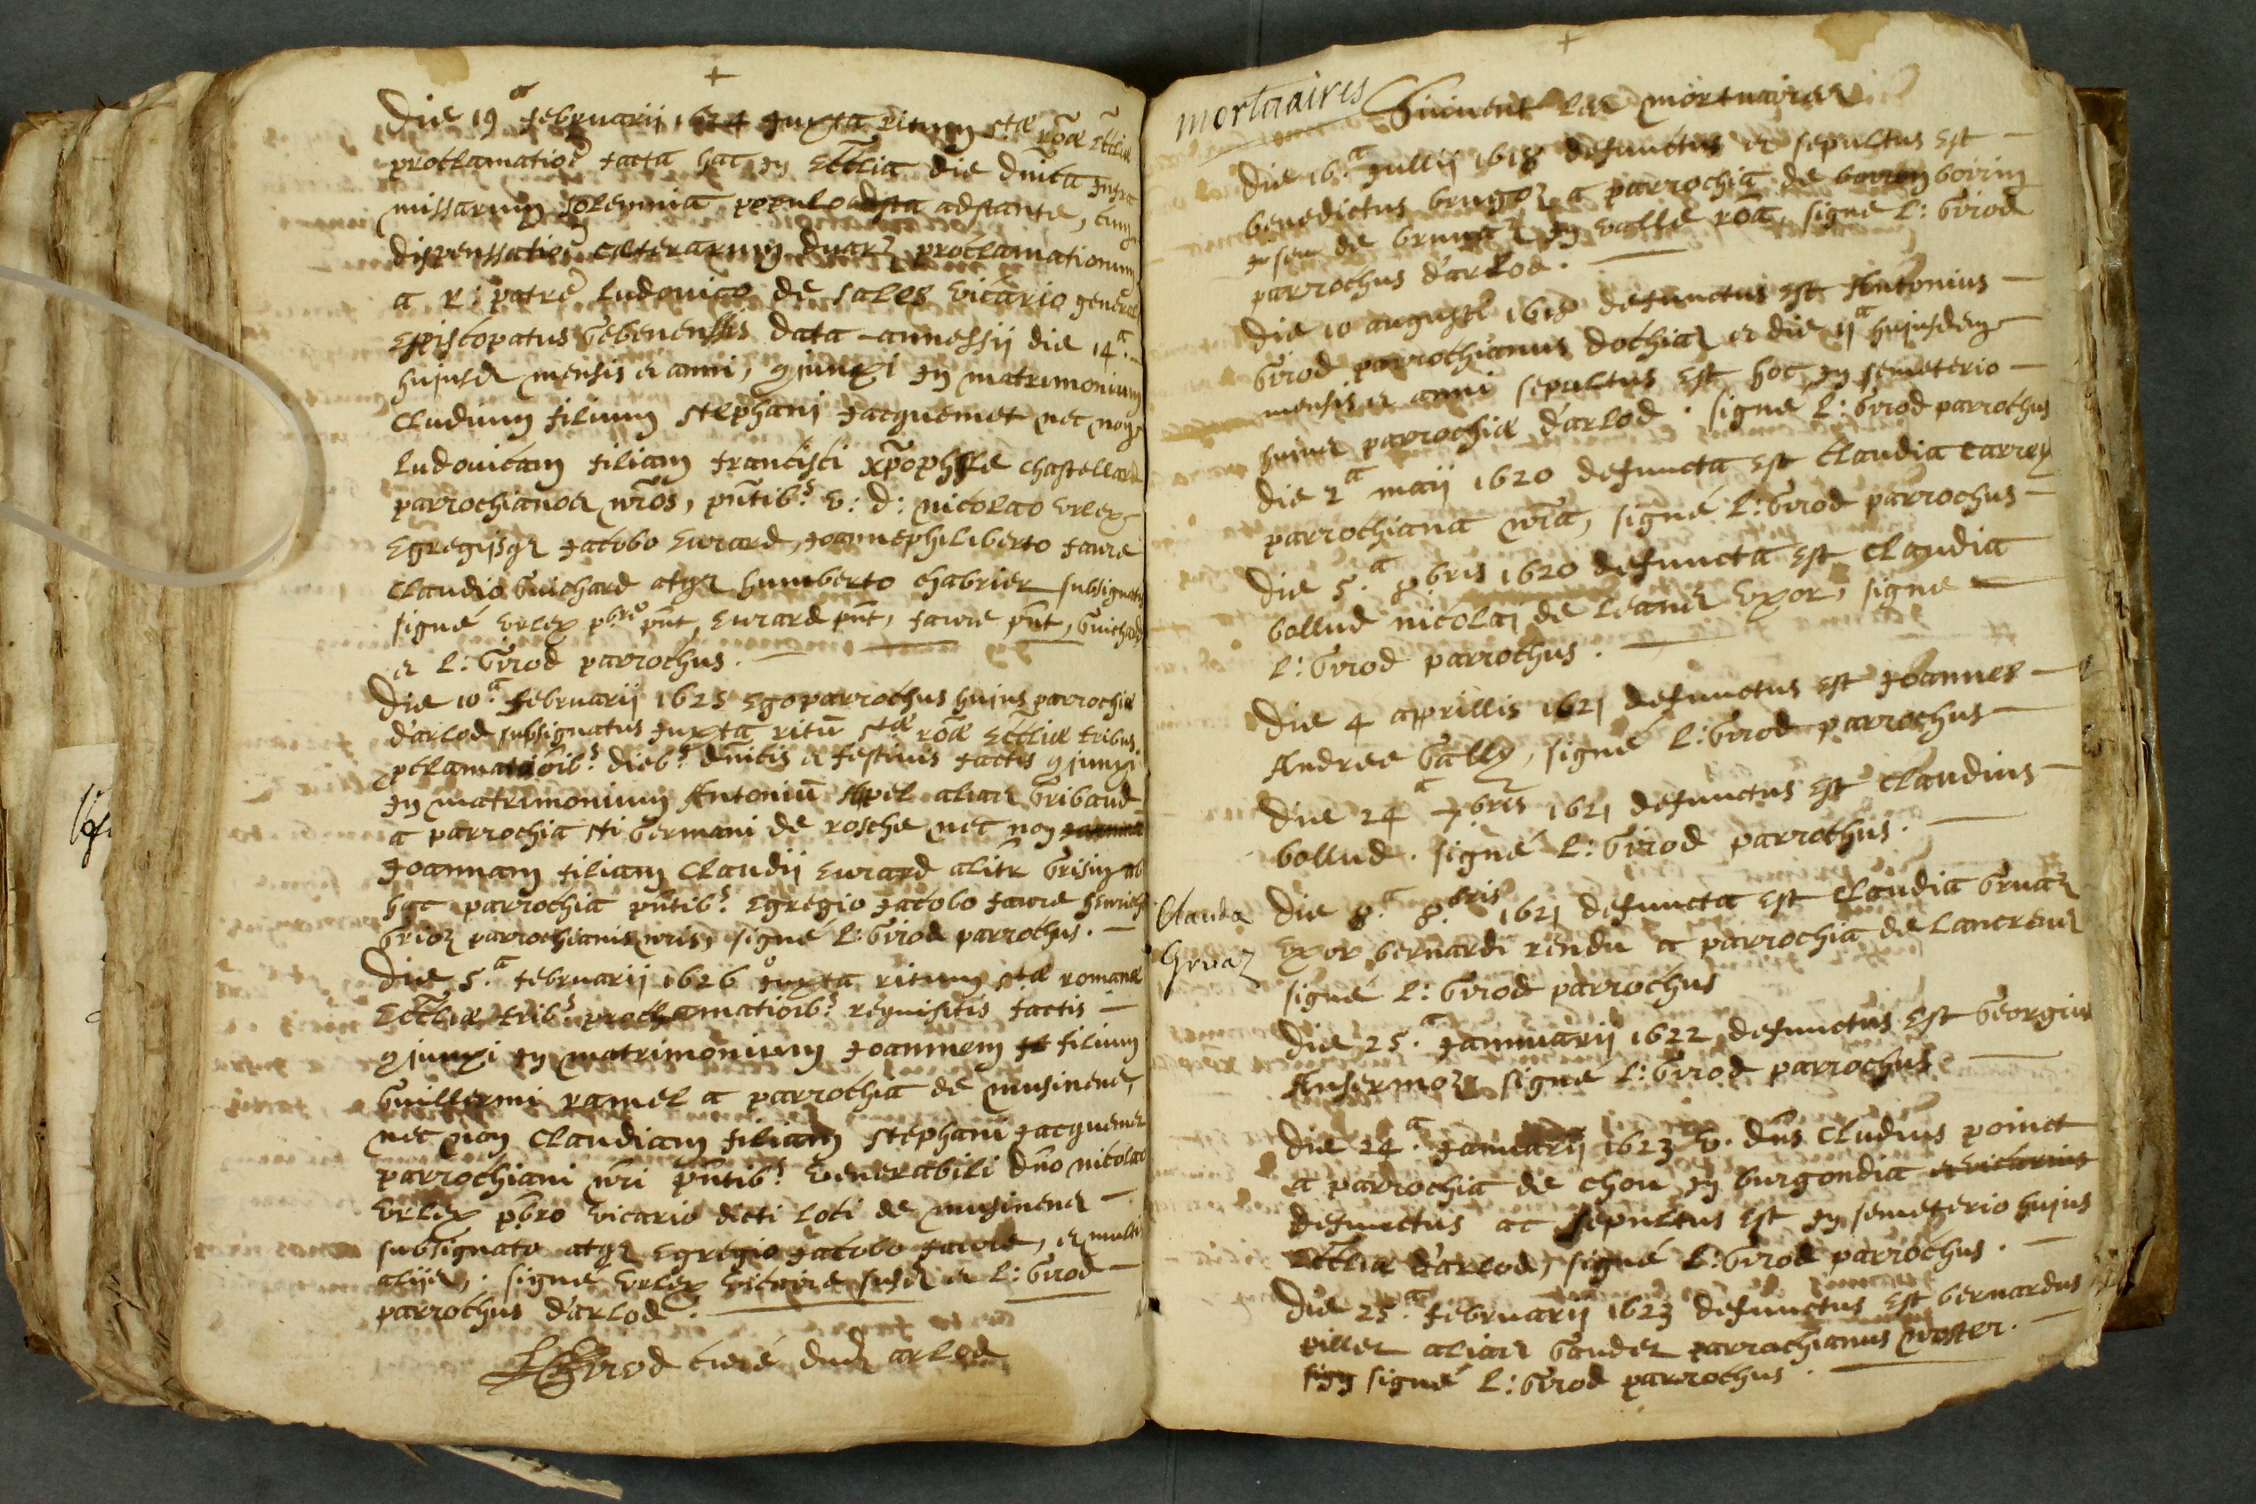 +
Die 19 a februarij 1624 juxta ritum stæ roæ Eccliæ
proclamatioe facta hac in Ecclia die dnica infra
missarum solemnia populo adsta adstante, cum
dispenssatioe cæterarum duarz proclamationum
a R: patre Ludovico de sales vicario general
Episcopatus Gebenensis data annessij die 14 a.
hujusd mensis et anni, 9junxi in matrimonium
Cludium filium stephani Jacquemet nec non
Ludovicam filiam francisci xpophle chastellard
parrochianos nros, pntib9 v: d: nicolao vrlex
Egregijsq Jacobo Evrard, Joannephiliberto favre
Claudio Guichard atq humberto chabrier subsignatis
signé vrlex pbro pnt, Evrard pnt, favre pnt, Guichard
et L: Girod parrochus.
Die 10 a. februarij 1625 Ego parrochus hujus parrochiæ
d'arlod subsignatus juxta ritu stæ roæ Eccliæ tribus
pclamatioib9 dieb9 dnicis et festivis factis 9junxi
in matrimonium Antoniu Apel alias Gribaud
a parrochia sti Germani de rosche nec non
Joannam filiam Claudij Evrard alitr Grisin ab
hac parrochia pntib9 Egregio Jacobo favre henrico
Grioz parrochianis nris, signé L: Girod parrochus.
Die 5. a februarij 1626 juxta ritum stæ romanæ
Eccliæ trib9 proclamatioib9 requisitis factis
9junxi in matrimonium Joannem fi filium
Guillermi ramel a parrochia de musinens,
nec non Claudiam filiam stephani Jacquemet
parrochiani nri pntib9 venerabili dno nicolao
vrlex pbro vicario dicti loci de musinens
subsignato atq Egregio Jacobo favre, et multis
alijs. signé vrlex vicaire susd et L: Girod
parrochus d'arlod.
L Girod curé dud arlod
+
mortuaires
Suivent les mortuaires
Die 16. a Jullij 1618 defunctus et sepultus est
benedictus brugoz a parrochia de bovin bovin
seu de brunaz in valle roa, signé L: Girod
parrochus d'arlod.
Die 10 augusti 1618 defunctus est Antonius
Girod parrochianus dochiaz et die 11 a hujusdem
mensis et anni sepultus est hoc in semeterio
hujus parrochiæ d'arlod. signé L: Girod parrochus
Die 2 a maij 1620 defuncta est Claudia Carrex
parrochiana nra, signé L: Girod parrochus
Die 5. a 8bris 1620 defuncta est Claudia
bollud nicolaj de Leaues vxor, signé
L: Girod parrochus.
Die 4 apprillis 1621 defunctus est Joannes
Andree Gally, signé L: Girod parrochus
Die 24 a 7bris 1621 defunctus est Claudius
bollud. signé L: Girod parrochus.
Clauda
Gruaz
Die 8. a 8bris 1621 defuncta est Claudia Gruaz
vxor bernardi rendu a parrochia de Lancrens
signé L: Girod parrochus
Die 25. a Januuarij 1622 defunctus est Georgius
Ansermoz signé L: Girod parrochus
Die 24. a Januarij 1623 v. dns Cludius poinct
a parrochia de chou in burgondia et vicarius
defunctus ac sepultus est in semeterio hujus
Eccliæ d'arlod, signé L: Girod parrochus.
Die 25. a februarij 1623 defunctus est bernardus
tillet alias Gander parrochianus noster.
sign signé L: Girod parrochus.